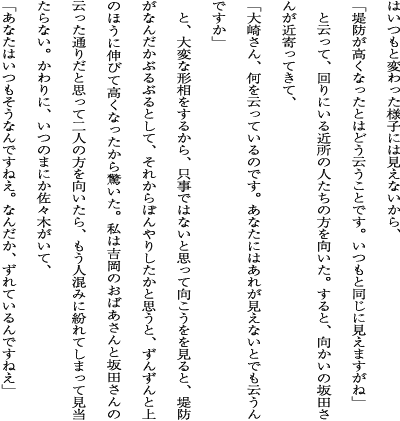 はいつもと変わった様子には見えないから、
「堤防が高くなったとはどう云うことです。いつもと同じに見えますがね」
と云って、回りにいる近所の人たちの方を向いた。すると、向かいの坂田さ
んが近寄ってきて、
「大崎さん、何を云っているのです。あなたにはあれが見えないとでも云うん
ですか」
と、大変な形相をするから、只事ではないと思って向こうをを見ると、堤防
がなんだかぶるぶるとして、それからぼんやりしたかと思うと、ずんずんと上
のほうに伸びて高くなったから驚いた。私は吉岡のおばあさんと坂田さんの
云った通りだと思って二人の方を向いたら、もう人混みに紛れてしまって見当
たらない。かわりに、いつのまにか佐々木がいて、
「あなたはいつもそうなんですねえ。なんだか、ずれているんですねえ」